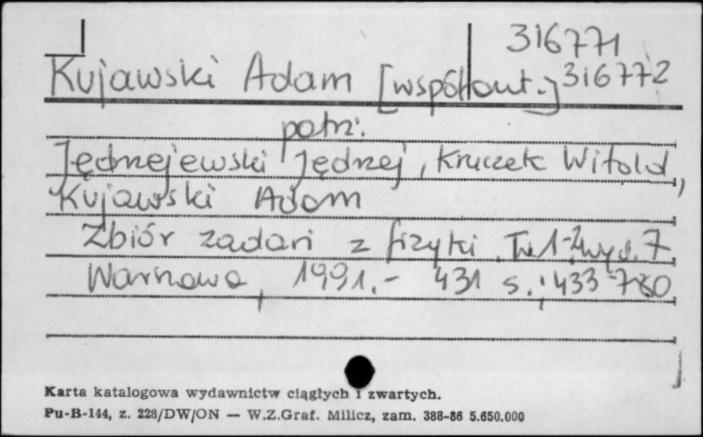 316771
Kujawski Adam [współaut.] 316772
patrz:
Jędrzejewski Jędrzej, Kruczek Witold,
Kujawski Adam
Zbiór zadań z fizyki. T. 1-2, wyd. 7
Warszawa, 1991.- 431 s.; 433-780
Karta katalogowa wydawnictw ciągłych i zwartych.
Pu-B-144, z. 228/DW/ON — W.Z.Graf. Milicz, zam. 388-86 5.650.000